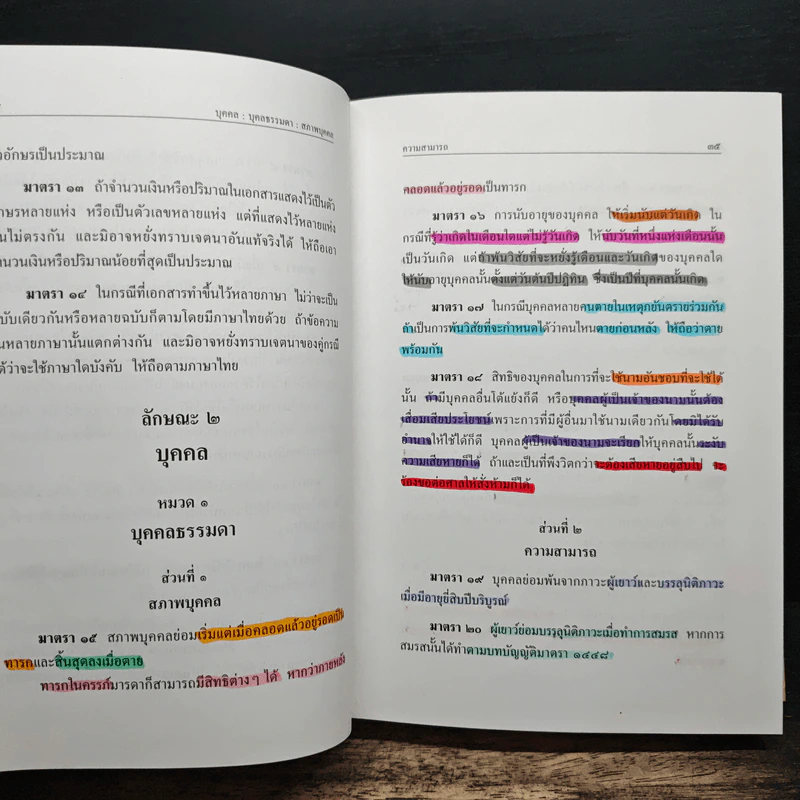 บุคคล : บุคลธรรมดา : สภาพบุคคล
อักษรเป็นประมาณ
มาตรา ๑๓ ถ้าจำนวนเงินหรือปริมาณในเอกสารแสดงไว้เป็นตัว
หลายแห่ง หรือเป็นตัวเลขหลายแห่ง แต่ที่แสดงไว้หลายแห่ง
ไม่ตรงกัน และมิอาจหยั่งทราบเจตนาอันแท้จริงได้ ให้ถือเอา
จำนวนเงินหรือปริมาณน้อยที่สุดเป็นประมาณ
มาตรา ๑๔ ในกรณีที่เอกสารทำขึ้นไว้หลายภาษา ไม่ว่าจะเป็น
ฉบับเดียวกันหรือหลายฉบับก็ตามโดยมีภาษาไทยด้วย ถ้าข้อความ
หลายภาษานั้นแตกต่างกัน และมิอาจหยั่งทราบเจตนาของคู่กรณี
ได้ว่าจะใช้ภาษาใดบังคับ ให้ถือตามภาษาไทย
ลักษณะ ๒
บุคคล
หมวด ๑
บุคคลธรรมดา
ส่วนที่ ๑
สภาพบุคคล
มาตรา ๑๕ สภาพบุคคลย่อมเริ่มแต่เมื่อคลอดแล้วอยู่รอดเป็น
ทารกและสิ้นสุดลงเมื่อตาย
ทารกในครรภ์มารดาก็สามารถมีสิทธิต่าง ๆ ได้ หากว่าภายหลัง
ความสามารถ ๓๕
คลอดแล้วอยู่รอดเป็นทารก
มาตรา ๑๖ การนับอายุของบุคคล ให้เริ่มนับแต่วันเกิด ใน
กรณีที่รู้ว่าเกิดในเดือนใดแต่ไม่รู้วันเกิด ให้นับวันที่หนึ่งแห่งเดือนนั้น
เป็นวันเกิด แต่ถ้าพ้นวิสัยที่จะหยั่งรู้เดือนและวันเกิดของบุคคลใด
ให้นับอายุบุคคลนั้นตั้งแต่วันต้นปีปฏิทิน ซึ่งเป็นปีที่บุคคลนั้นเกิด
มาตรา ๑๗ ในกรณีบุคคลหลายคนตายในเหตุภยันตรายร่วมกัน
ถ้าเป็นการพ้นวิสัยที่จะกำหนดได้ว่าคนไหนตายก่อนหลัง ให้ถือว่าตาย
พร้อมกัน
มาตรา ๑๘ สิทธิของบุคคลในการที่จะใช้นามอันชอบที่จะใช้ได้
นั้น ถ้ามีบุคคลอื่นโต้แย้งก็ดี หรือบุคคลผู้เป็นเจ้าของนามนั้นต้อง
เสื่อมเสียประโยชน์เพราะการที่มีผู้อื่นมาใช้นามเดียวกันโดยมิได้รับ
อำนาจให้ใช้ได้ก็ดี บุคคลผู้เป็นเจ้าของนามจะเรียกให้บุคคลนั้นระงับ
ความเสียหายก็ได้ ถ้าและเป็นที่พึงวิตกว่าจะต้องเสียหายอยู่สืบไป จะ
ร้องขอต่อศาลให้สั่งห้ามก็ได้
ส่วนที่ ๒
ความสามารถ
มาตรา ๑๙ บุคคลย่อมพ้นจากภาวะผู้เยาว์และบรรลุนิติภาวะ
เมื่อมีอายุยี่สิบปีบริบูรณ์
มาตรา ๒๐ ผู้เยาว์ย่อมบรรลุนิติภาวะเมื่อทำการสมรส หากการ
สมรสนั้นได้ทำตามบทบัญญัติมาตรา ๑๔๔๘